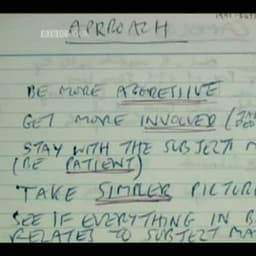 APPROACH
BE MORE AGGRESSIVE
GET MORE INVOLVED (
STAY WITH THE SUBJECT M
(BE PATIENT)
TAKE SIMPLER PICTURE
SEE IF EVERYTHING IN B
RELATES TO SUBJECT MA